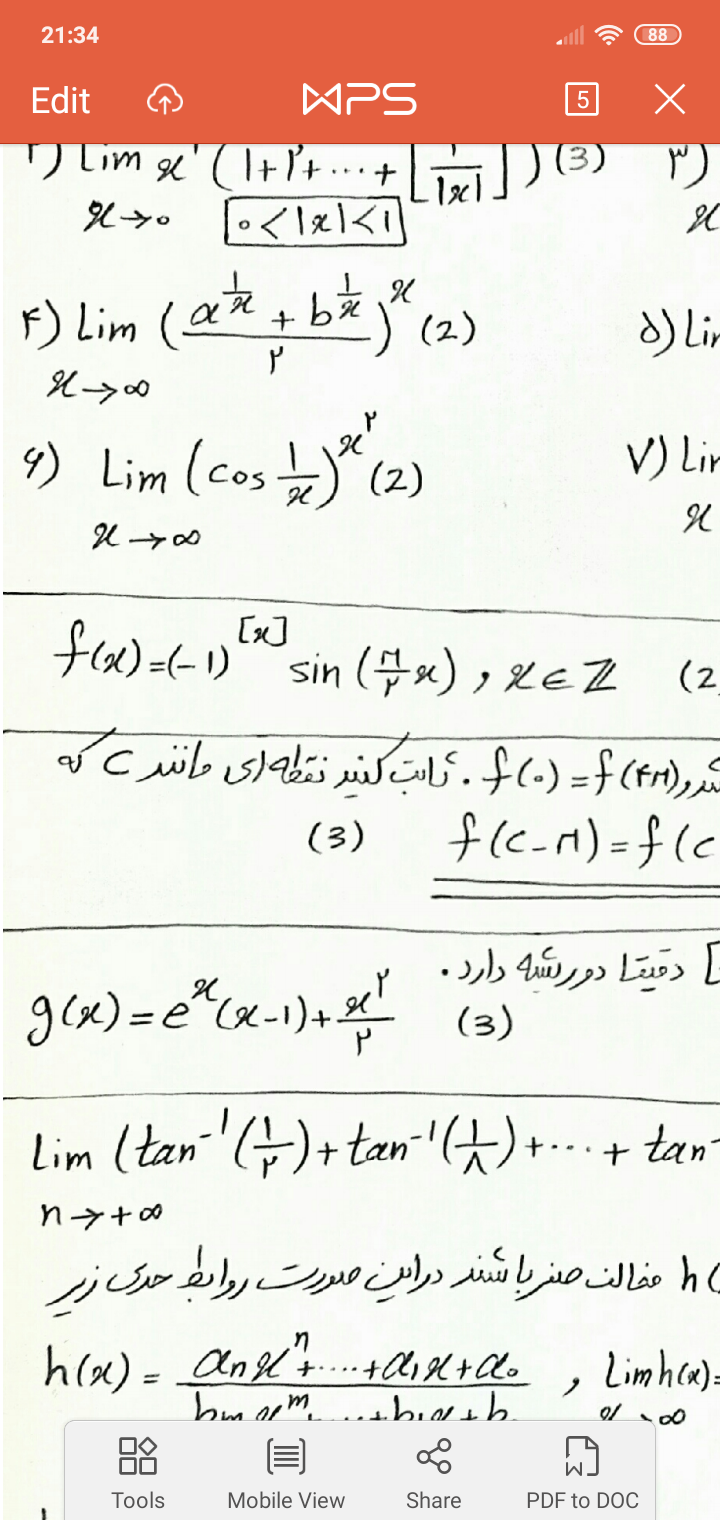 21:34 88
Edit WPS 5
۲) Lim x² (1+۲+...+[1/|x|]) (3) ۳)
x→0 0<|x|<1 x
۴) Lim ((a^(1/x) + b^(1/x))/۲)^x (2) ۵) Lim
x→∞
۶) Lim (cos 1/x)^(x^۲) (2) ۷) Lim
x→∞ x
f(x)=(-1)^[x] sin(π/۲ x) , x∈ℤ (2
f(0)=f(۴π), ثابت کنید نقطه‌ای مانند C که
(3) f(c-π)=f(c
دقیقا دو ریشه دارد.
g(x)=e^x(x-1)+x^۲/۲ (3)
Lim (tan⁻¹(1/۲)+tan⁻¹(1/۸)+...+tan⁻
n→+∞
h( مخالف صفر باشند در این صورت روابط حدی زیر
h(x) = (aₙxⁿ+....+a₁x+a₀)/(bₘxᵐ...+b₁x+b , Lim h(x)=
x→∞
Tools Mobile View Share PDF to DOC